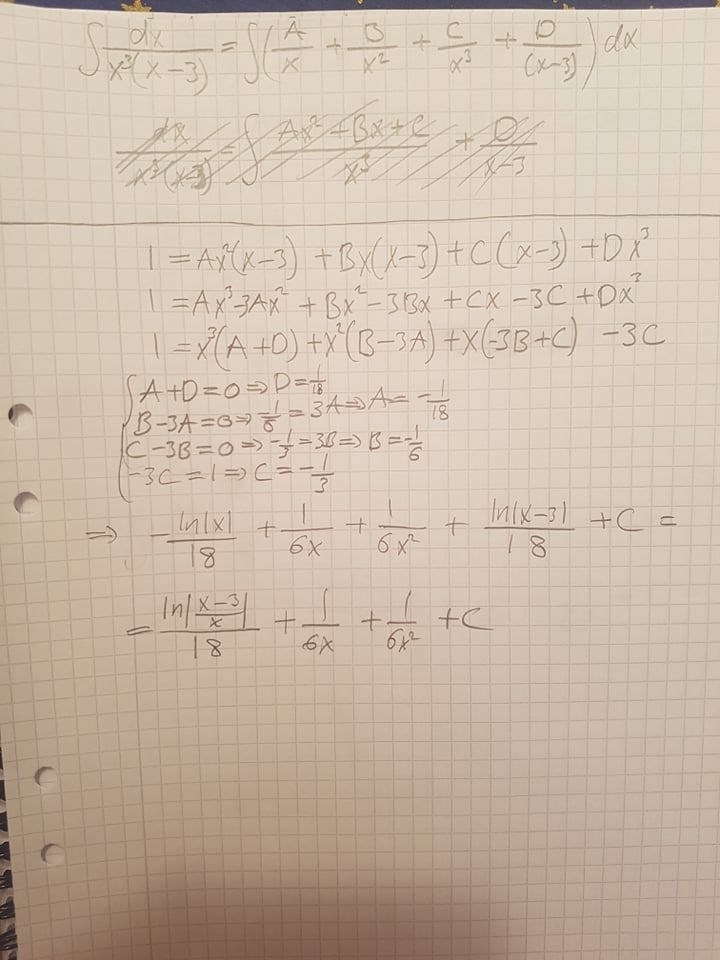 ∫ dx/(x³(x-3)) = ∫ (A/x + B/x² + C/x³ + D/(x-3)) dx
dx/(x³(x-3)) = ∫ (Ax²+Bx+C)/x³ + D/(x-3)
1 = Ax²(x-3) + Bx(x-3) + C(x-3) + Dx³
1 = Ax³-3Ax² + Bx²-3Bx + Cx - 3C + Dx³
1 = x³(A+D) + x²(B-3A) + x(-3B+C) - 3C
A+D=0 ⇒ D=1/18
B-3A=0 ⇒ -1/6 = 3A ⇒ A= -1/18
C-3B=0 ⇒ -1/3 = 3B ⇒ B= -1/6
-3C=1 ⇒ C= -1/3
⇒ - ln|x|/18 + 1/6x + 1/6x² + ln|x-3|/18 + C =
= ln|(x-3)/x|/18 + 1/6x + 1/6x² + C